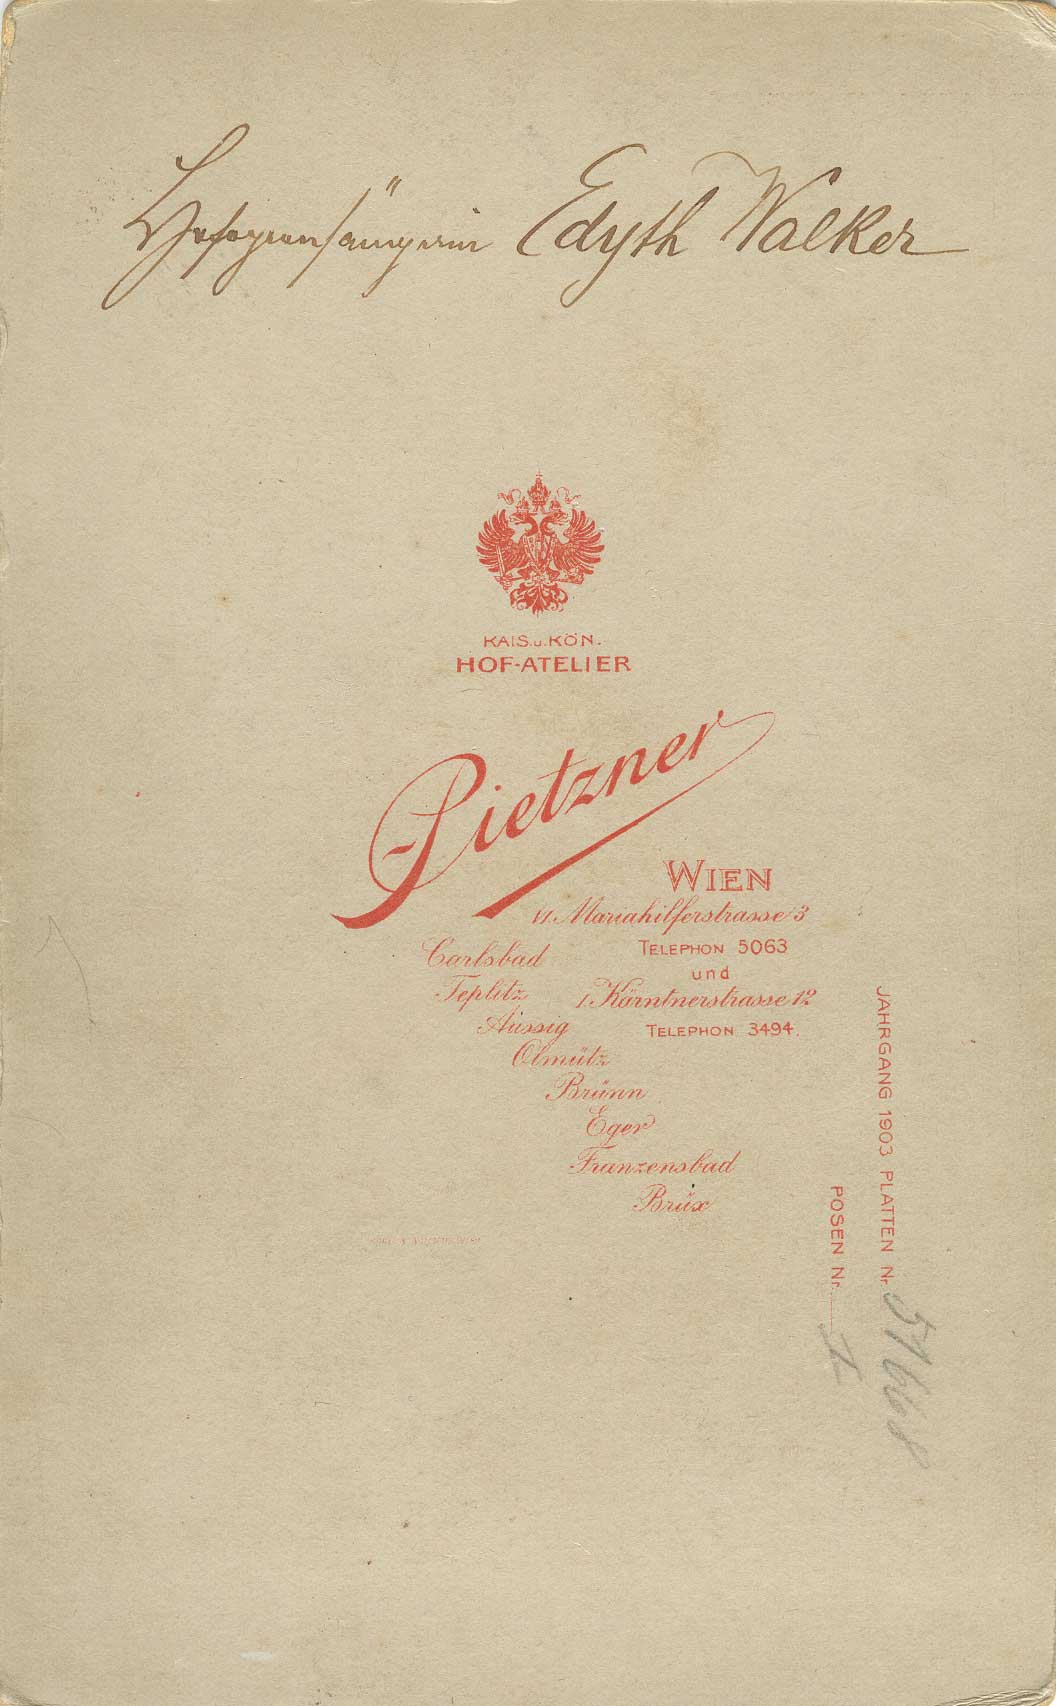 Hofopernsängerin Edyth Walker
KAIS. u. KÖN.
HOF-ATELIER
Pietzner
WIEN
VI. Mariahilferstrasse 3
TELEPHON 5063
und
I. Kärntnerstrasse 12
TELEPHON 3494.
Carlsbad
Teplitz
Aussig
Olmütz
Brünn
Eger
Franzensbad
Brüx
JAHRGANG 1903 PLATTEN Nr. 57668
POSEN Nr. I